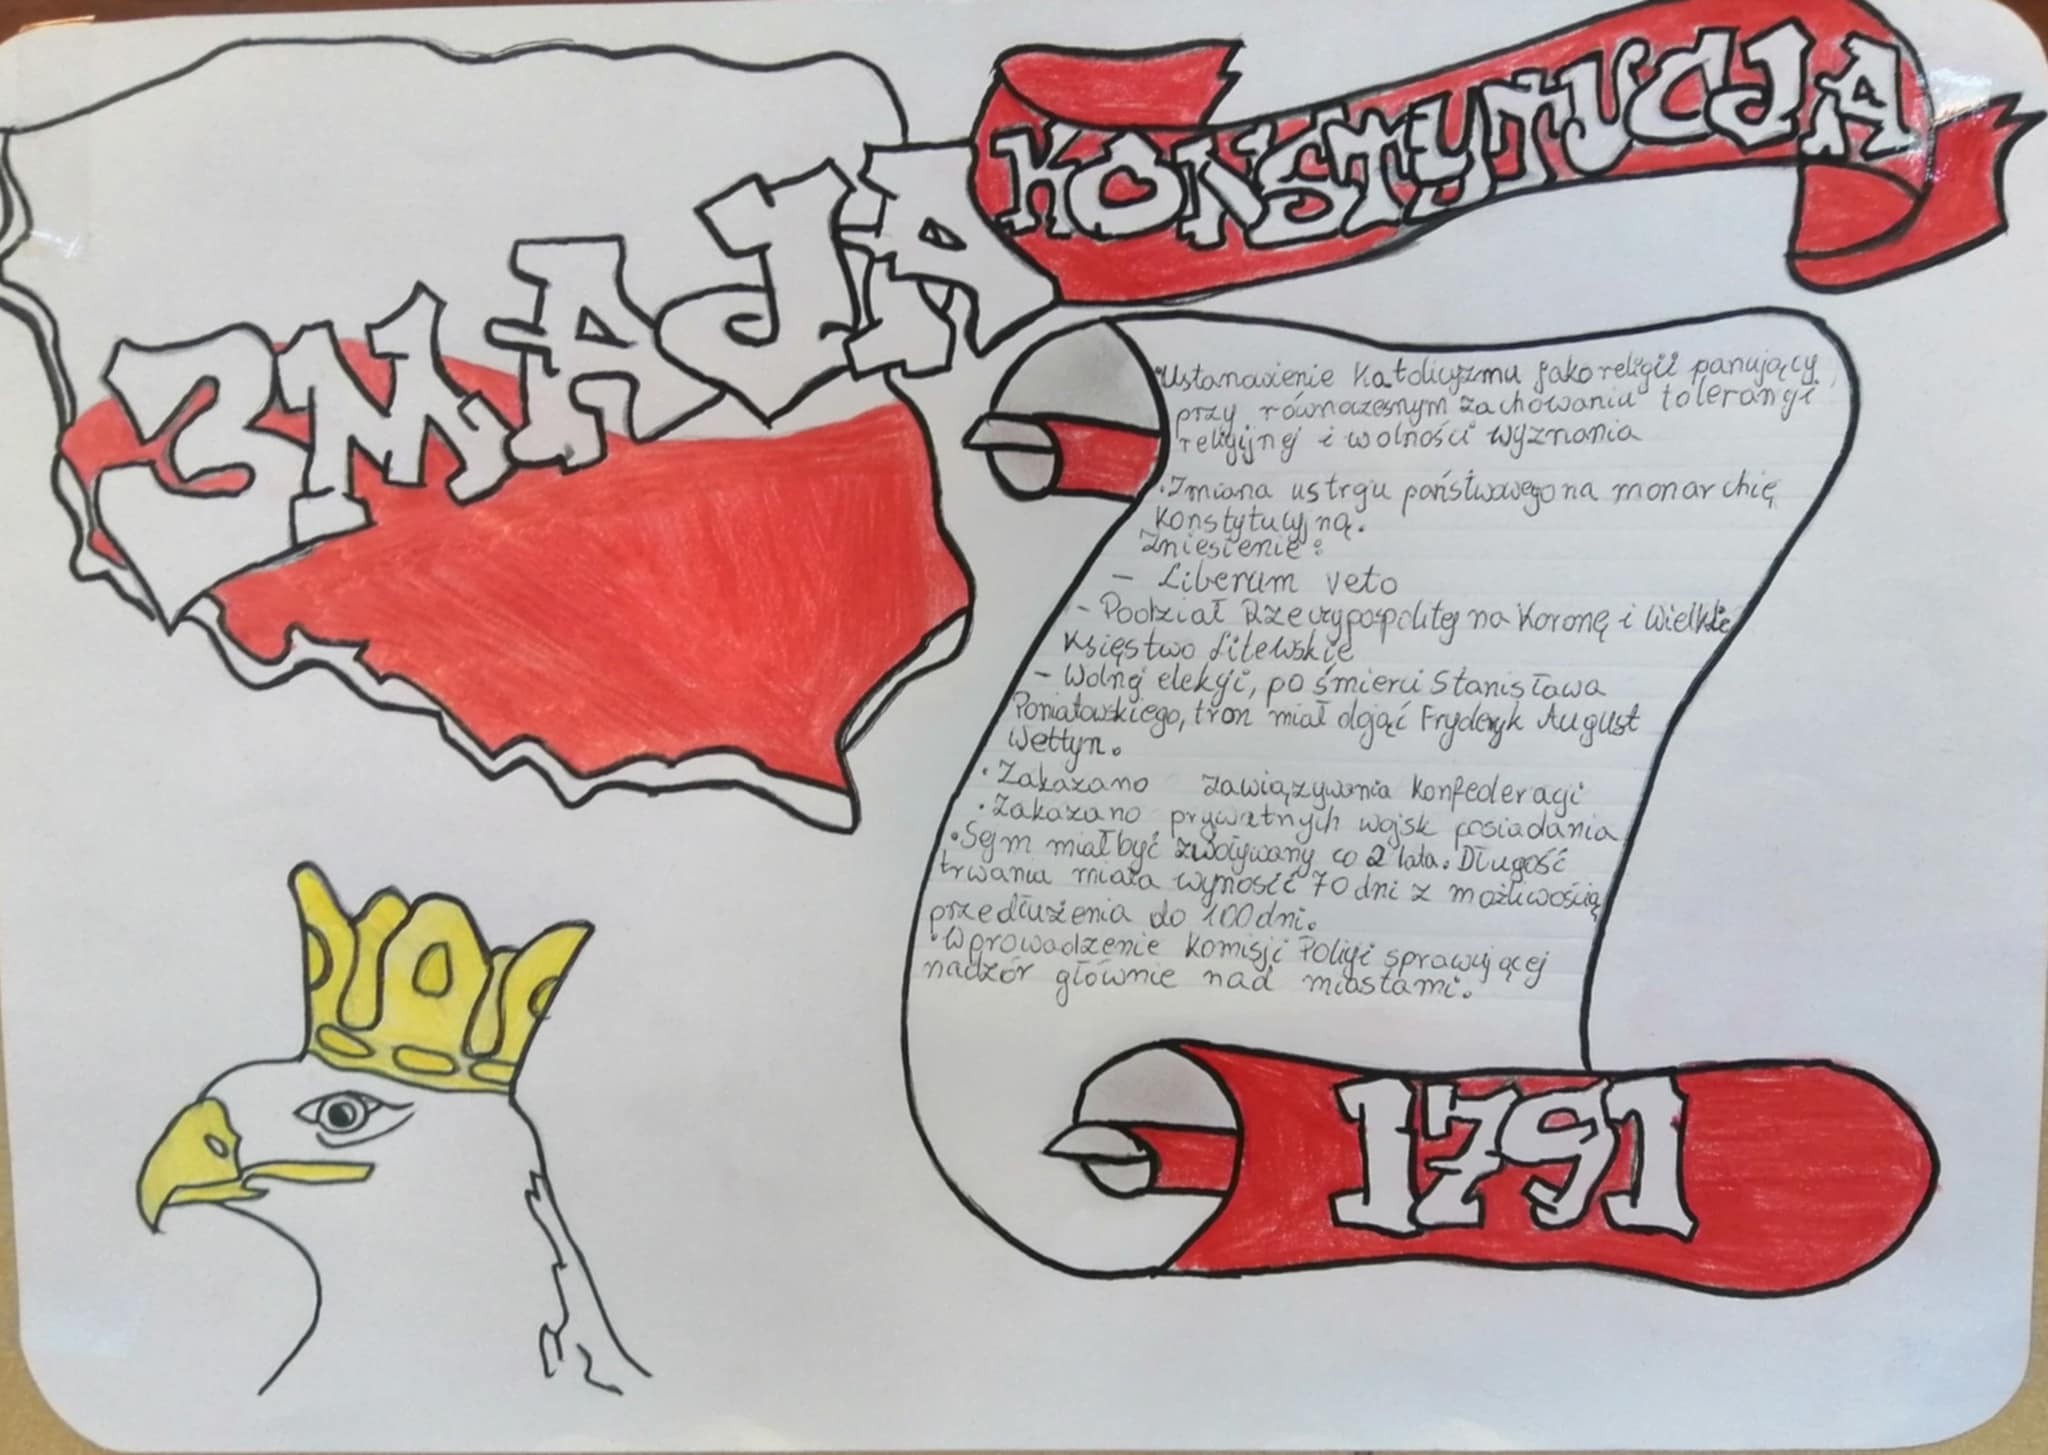 3 MAJA
KONSTYTUCJA
•Ustanowienie Katolicyzmu jako religii panujący,
przy równoczesnym zachowaniu tolerancji
religijnej i wolności wyznania
•Zmiana ustroju państwowego na monarchię
Konstytucyjną.
Zniesienie:
- Liberum veto
- Podział Rzeczypospolitej na Koronę i Wielkie
Księstwo Litewskie
- Wolnej elekcji, po śmierci Stanisława
Poniatowskiego, tron miał objąć Fryderyk August
Wettyn.
•Zakazano zawiązywania Konfederacji
•Zakazano prywatnych wojsk posiadania
•Sejm miał być zwoływany co 2 lata. Długość
trwania miała wynosić 70 dni z możliwością
przedłużenia do 100 dni.
•Wprowadzenie Komisji Policji sprawującej
nadzór głównie nad miastami.
1791